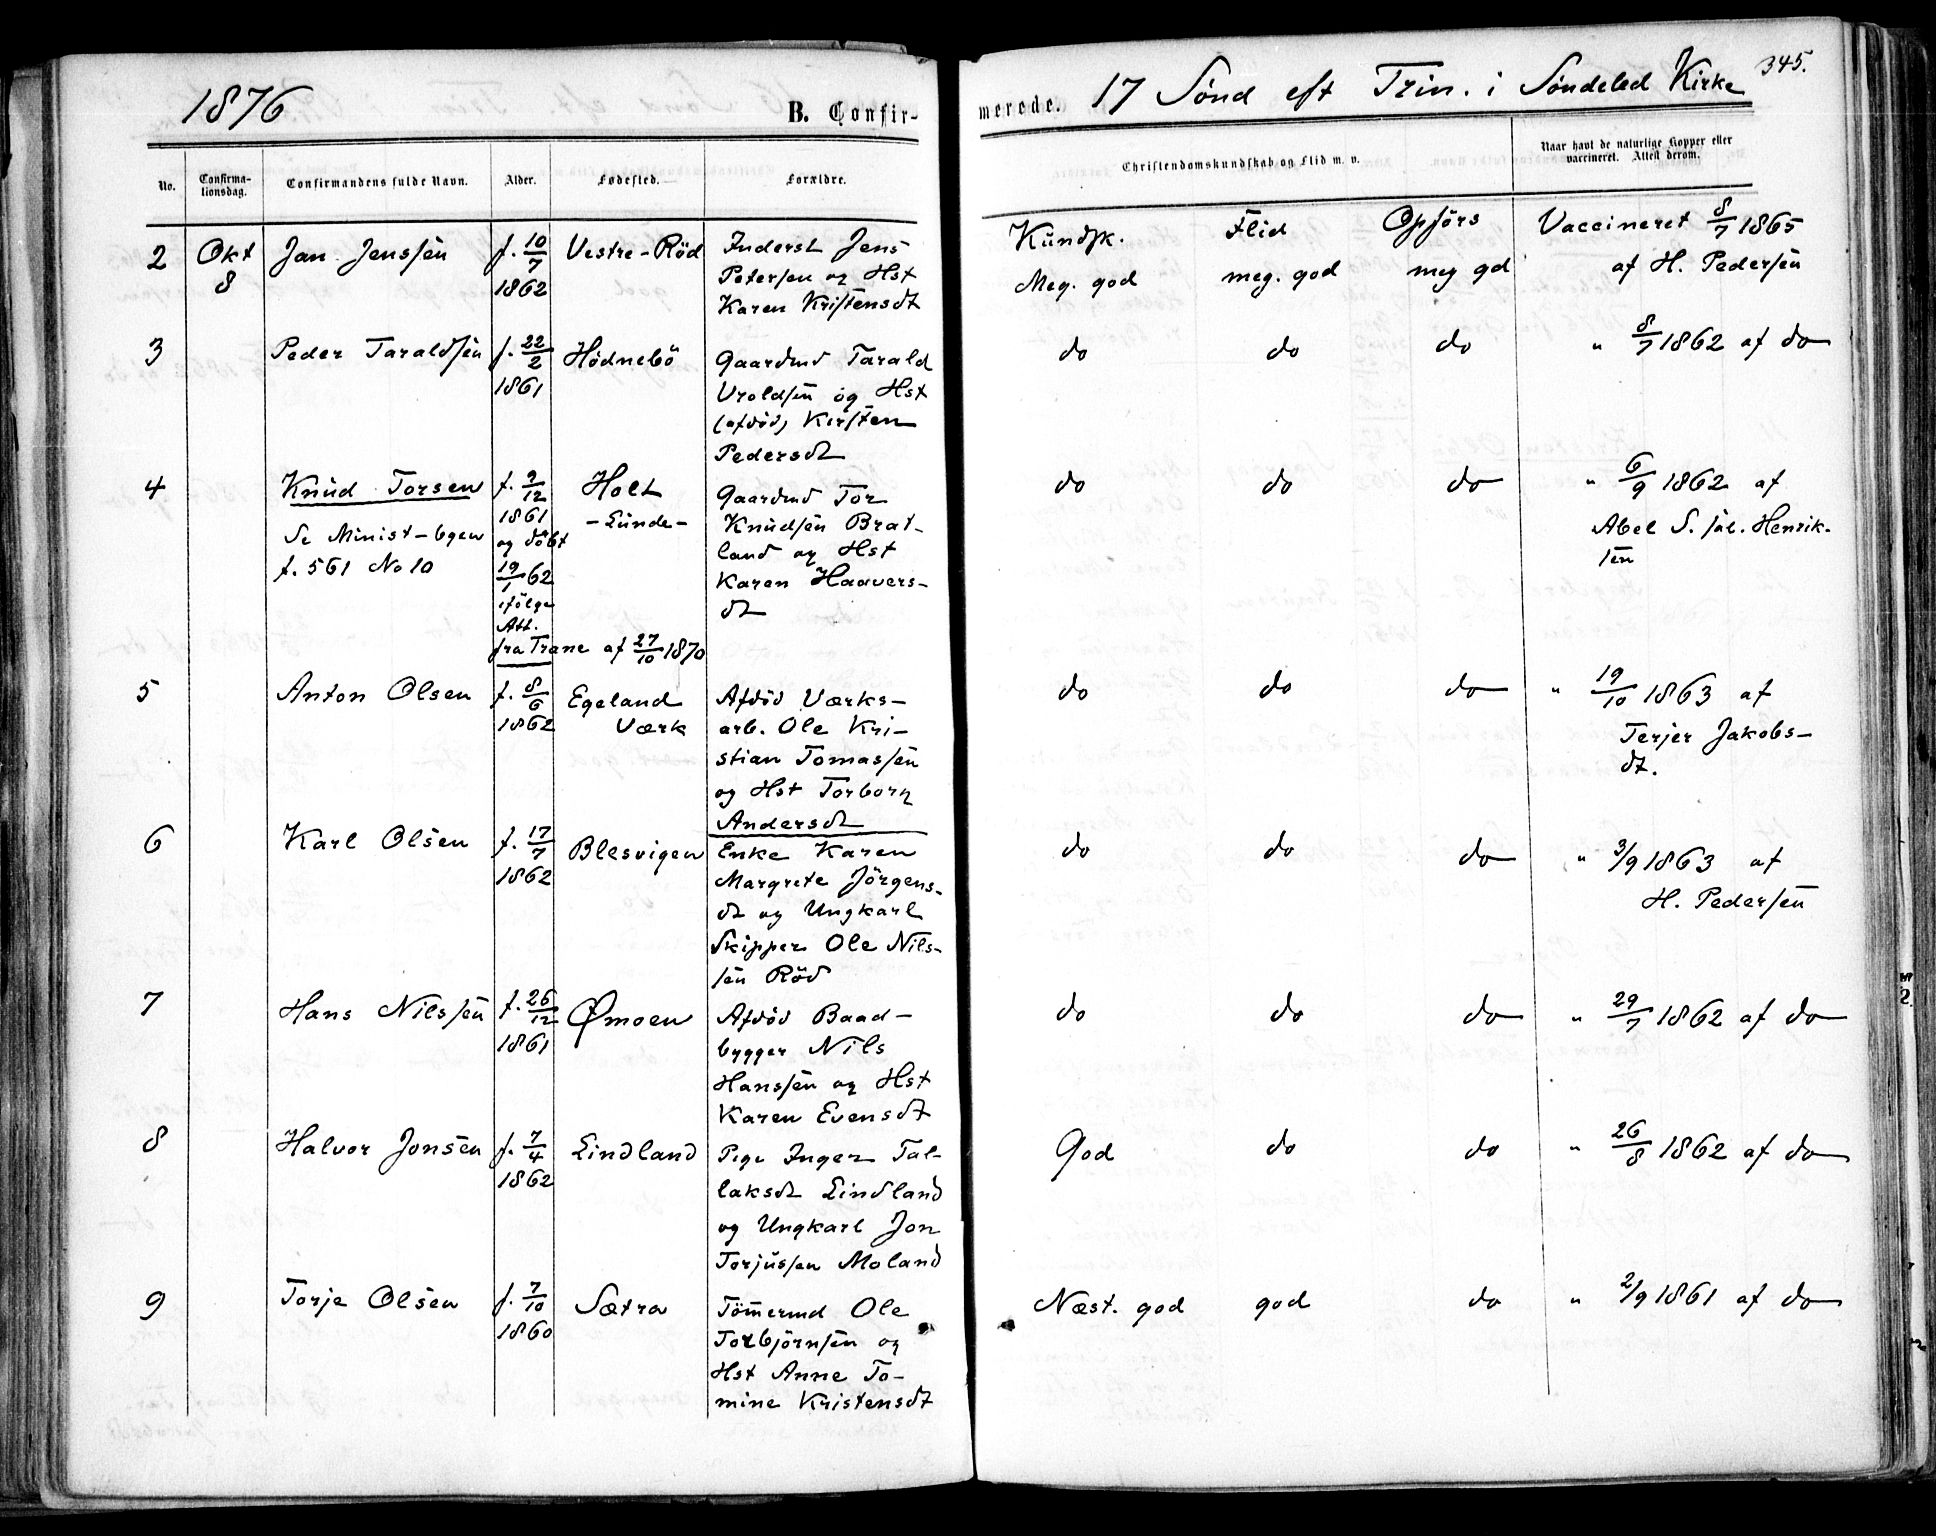 1876
B. Confir-
No.
Confirma-
tionsdag.
Confirmandens fulde Navn.
Alder.
Fødested.
Forældre.
2
Okt
8
Jan Jenssen
f. 10/7
1862
Vestre-Röd
Inderst Jens
Petersen og Hst
Karen Kristensdt
3
Peder Taraldsen
f. 22/2
1861
Hödnebö
Gaardmd Tarald
Uroldsen og Hst
(afdöd) Kirsten
Pedersdt
4
Knud Torsen
Se Minist-bgen
f. 561 No 10
f. 9/12
1861
og döbt
19/1 62
ifölge
Att.
fra Trane af 27/10 1870
Holt
-Lunde-
Gaardmd Tor
Knudsen Brat-
land og Hst
Karen Haavers-
dt
5
Anton Olsen
f. 8/6
1862
Egeland
Værk
Afdöd Værks-
arb. Ole Kri-
stian Tomassen
og Hst Torborg
Andersdt
6
Karl Olsen
f. 17/7
1862
Blesvigen
Enke Karen
Margrete Jörgens-
dt og Ungkarl
Skipper Ole Nils-
sen Röd
7
Hans Nilssen
f. 26/12
1861
Ømoen
Afdöd Baad-
bygger Nils
Hanssen og Hst
Karen Evensdt
8
Halvor Jonsen
f. 7/4
1862
Lindland
Pige Inger Tal-
laksdt Lindland
og Ungkarl Jon
Torjussen Moland
9
Torje Olsen
f. 7/10
1860
Sætra
Tömermd Ole
Torbjörnsen og
Hst Anne To-
mine Kristensdt
345.
merede. 17 Sönd eft Trin. i Söndeled Kirke
Christendomskundskab og Flid m. v.
Naar havt de naturlige Kopper eller
vaccineret. Attest derom.
Kundsk. Flid Opförs Vaccineret 8/7 1865
Meg. god meg. god meg gd af H. Pedersen
do do do " 8/7 1862 af do
do do do " 6/9 1862 af
Abel S. Henrik-
sen
do do do " 19/10 1863 af
Terjer Jakobs-
dt.
do do do " 3/9 1863 af
H. Pedersen
do do do " 29/7 1862 af do
God do do " 26/8 1862 af do
Næst. god god do " 2/9 1861 af do